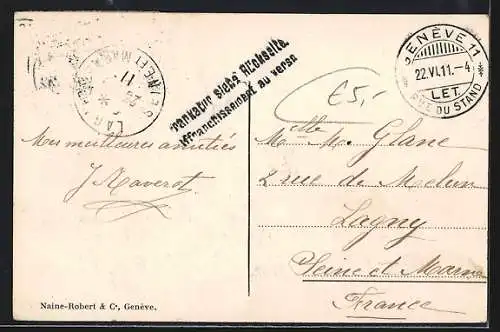 GENÈVE 11
22.VI.11.–4
LET.
RUE DU STAND
Frankatur siehe Rückseite.
Affranchissement au verso
LAGNY
SEINE ET MARNE
11
£5,-
Mes meilleures amitiés
J Raverot
Mlle M. Glane
2 rue de Melun
Lagny
Seine et Marne
France
Naine-Robert & Co, Genève.